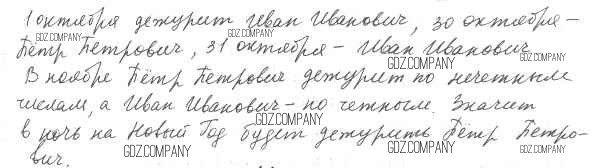 1 октября дежурит Иван Иванович, 30 октября –
GDZ.COMPANY GDZ.COMPANY
Пётр Петрович, 31 октября – Иван Иванович
GDZ.COMPANY GDZ.COMPANY
В ноябре Пётр Петрович дежурит по нечетным
числам, а Иван Иванович – по четным. Значит
GDZ.COMPANY GDZ.COMPANY
в ночь на Новый Год будет дежурить Пётр Петро-
вич.
GDZ.COMPANY GDZ.COMPANY